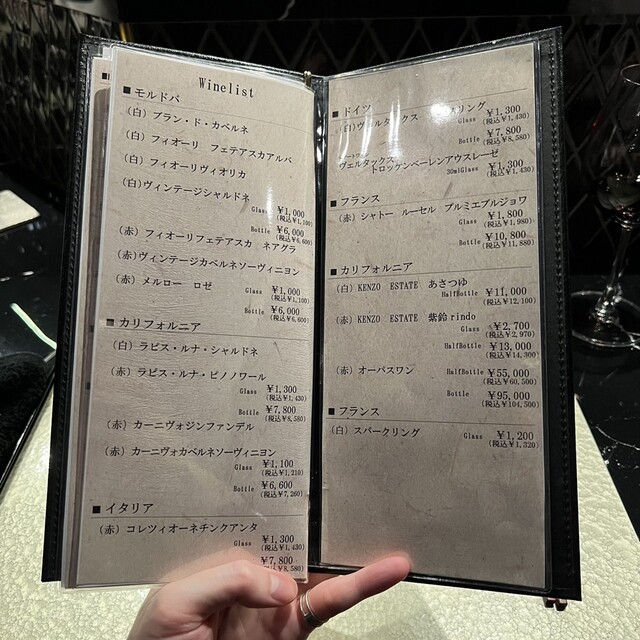 Winelist
■モルドバ
(白) ブラン・ド・カベルネ
(白) フィオーリ フェテアスカアルバ
(白) フィオーリヴィオリカ
(白)ヴィンテージシャルドネ
Glass ¥1,000
(税込¥1,100)
Bottle ¥6,000
(税込¥6,600)
(赤) フィオーリフェテアスカ ネアグラ
(赤)ヴィンテージカベルネソーヴィニヨン
(赤) メルロー ロゼ
Glass ¥1,000
(税込¥1,100)
Bottle ¥6,000
(税込¥6,600)
■カリフォルニア
(白) ラピス・ルナ・シャルドネ
(赤) ラピス・ルナ・ピノノワール
Glass ¥1,300
(税込¥1,430)
Bottle ¥7,800
(税込¥8,580)
(赤) カーニヴォジンファンデル
(赤) カーニヴォカベルネソーヴィニヨン
Glass ¥1,100
(税込¥1,210)
Bottle ¥6,600
(税込¥7,260)
■イタリア
(赤) コレツィオーネチンクアンタ
Glass ¥1,300
(税込¥1,430)
¥7,800
(税込¥8,580)
■ドイツ
(白)ヴェルタックス リング
Glass ¥1,300
(税込¥1,430)
Bottle ¥7,800
(税込¥8,580)
ヴェルタックス
トロッケンベーレンアウスレーゼ
30mlGlass ¥1,300
(税込¥1,430)
■フランス
(赤) シャトー ルーセル プルミエブルジョワ
Glass ¥1,800
(税込¥1,980)
Bottle ¥10,800
(税込¥11,880)
■カリフォルニア
(白) KENZO ESTATE あさつゆ
HalfBottle ¥11,000
(税込¥12,100)
(赤) KENZO ESTATE 紫鈴rindo
Glass ¥2,700
(税込¥2,970)
HalfBottle ¥13,000
(税込¥14,300)
(赤) オーパスワン HalfBottle ¥55,000
(税込¥60,500)
Bottle ¥95,000
(税込¥104,500)
■フランス
(白) スパークリング Glass ¥1,200
(税込¥1,320)